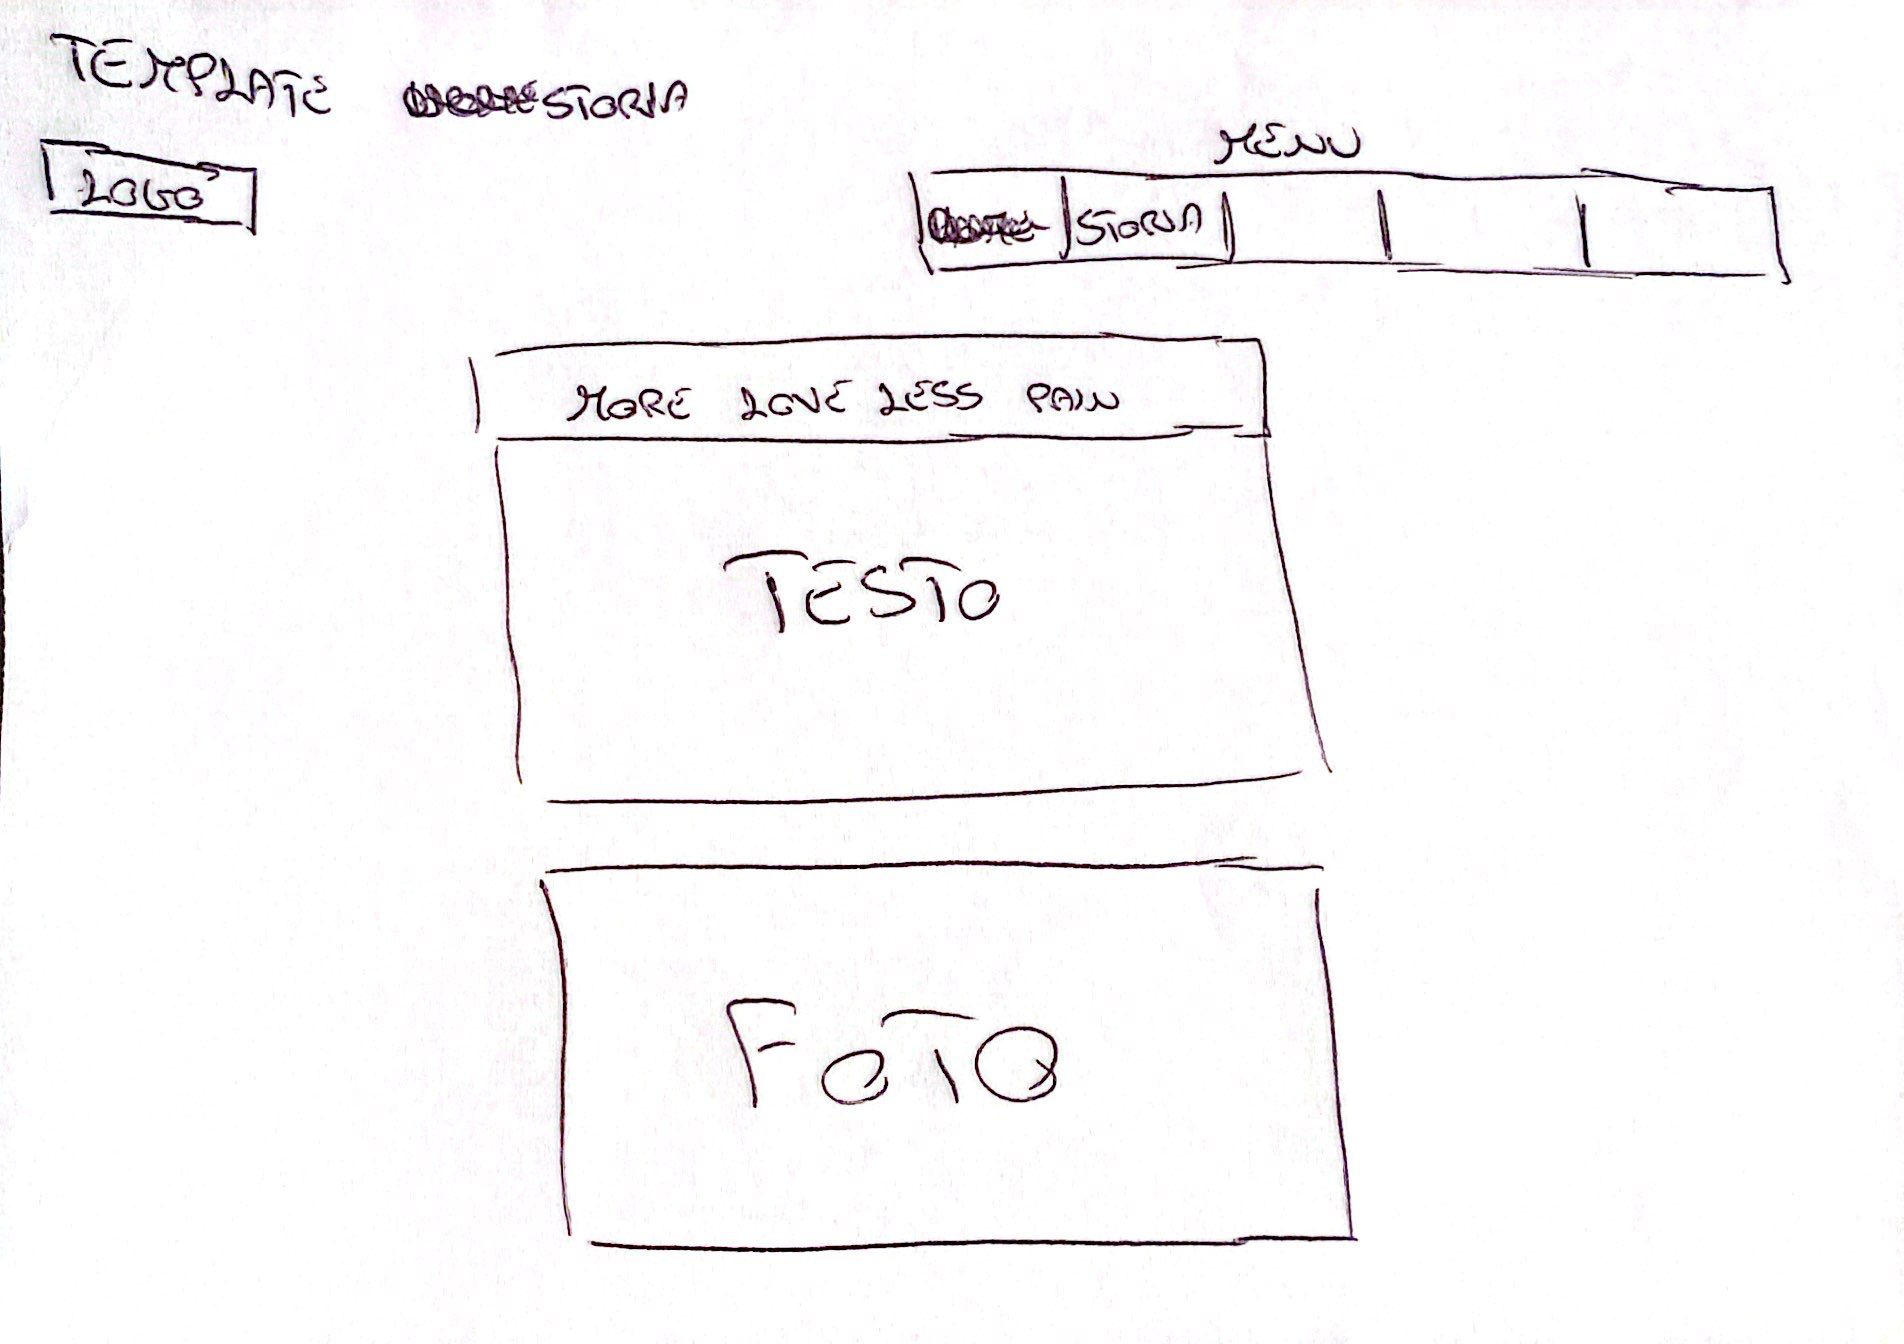 TEMPLATE STORIA
MENU
LOGO
STORIA
MORE LOVE LESS PAIN
TESTO
FOTO